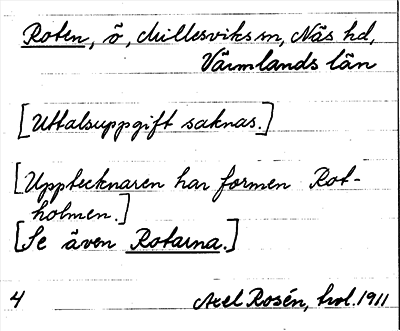 Roten, ö, Millesviks sn, Näs hd,
Värmlands län
[Uttalsuppgift saknas.]
[Upptecknaren har formen Rot-
holmen.]
[Se även Rotarna.]
4 Axel Rosén, hol. 1911